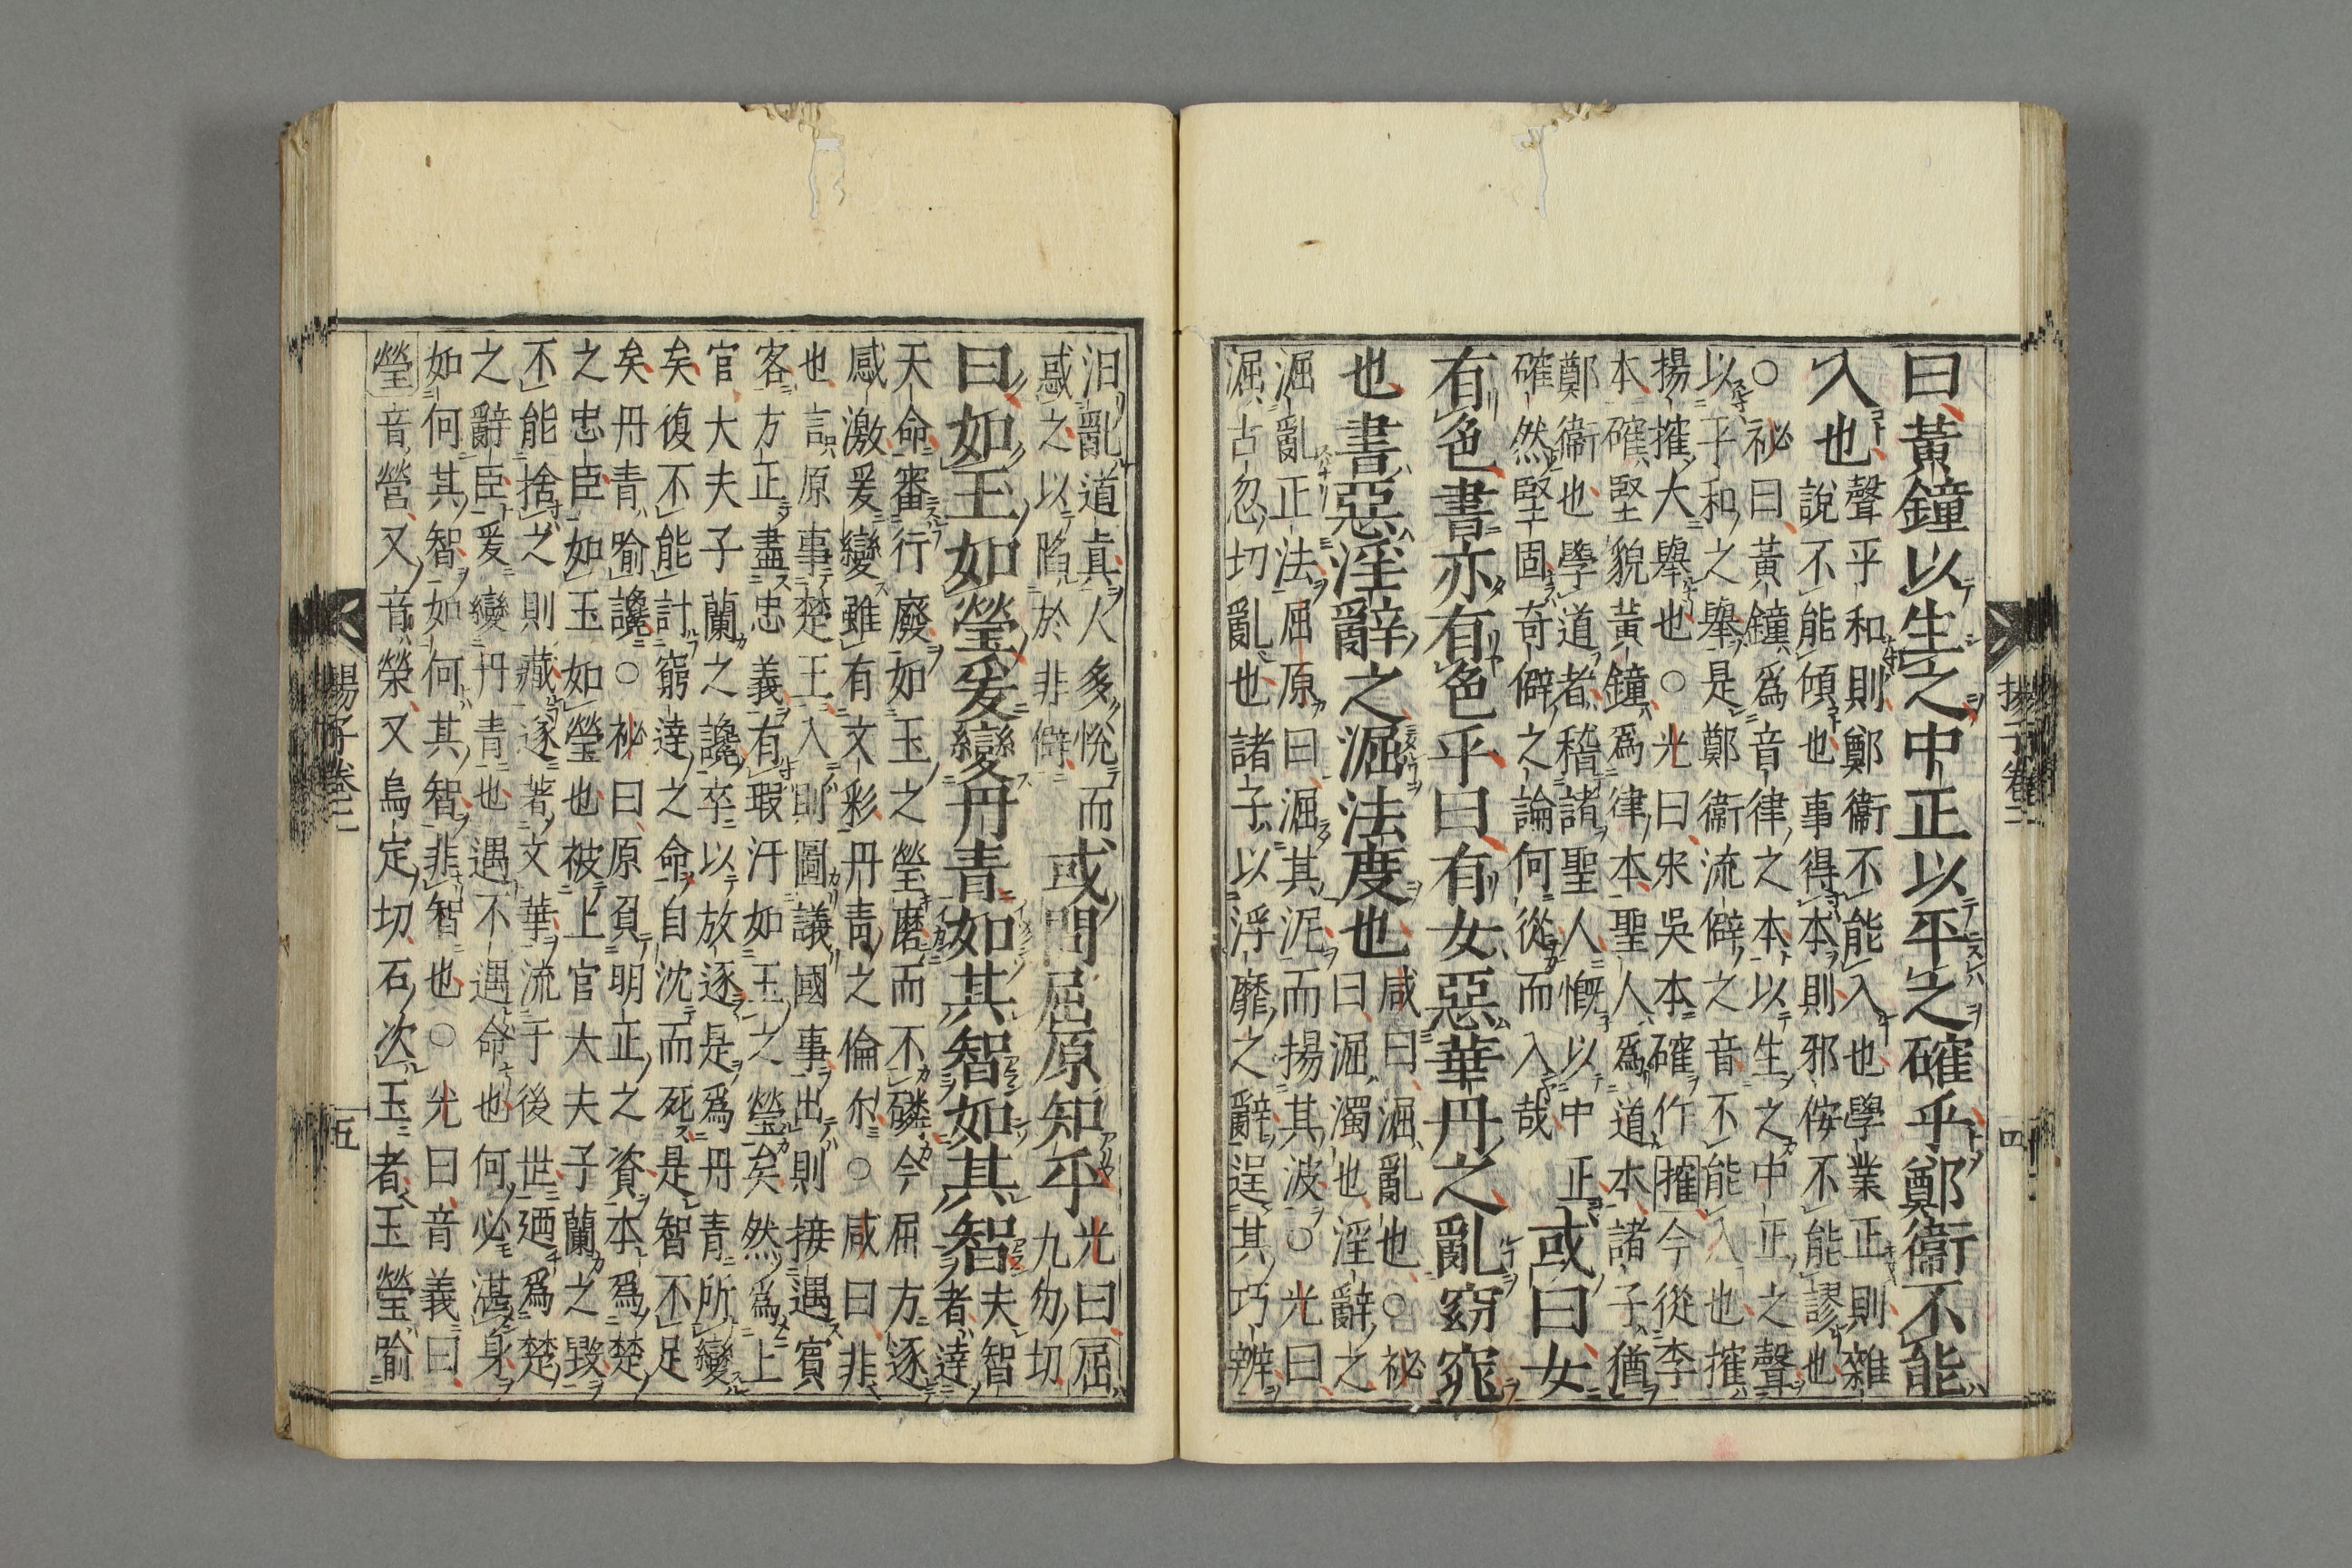 曰黃鐘以生之中正以平之確乎鄭衞不能
入也聲乎和則鄭衞不能入也學業正則雜
說不能傾也事得本則邪侫不能謬也
○祕曰黃鐘爲音律之本以生之中正之聲
以乎和之擧是鄭衞流僻之音不能入也搉
揚搉大擧也○光曰宋吳本確作搉今從李
本確堅貌黃鐘爲律本聖人爲道本諸子猶
鄭衞也學道者稽諸聖人慨以中正
確然堅固奇僻之論何從而入哉
或曰女
有色書亦有色乎曰有女惡華丹之亂窈窕
也書惡淫辭之淈法度也
咸曰淈亂也○祕
曰淈濁也淫辭之
淈亂正法屈原曰淈其泥而揚其波○光曰
淈古忽切亂也諸子以浮靡之辭逞其巧辨
揚子卷二
四
汩亂道眞人多悅而
惑之以陷於非僻
或問屈原知乎
光曰屈
九勿切
曰如玉如瑩爰變丹靑如其智如其智
夫智
者達
天命審行廢如玉之瑩磨而不磷今屈方逐
感激爰變雖有文彩丹靑之倫尒○咸曰非
也言原事楚王入則圖議國事出則接遇賓
客方正盡忠義有瑕汙如玉之瑩矣然爲上
官大夫子蘭之讒卒以放逐是爲丹靑所變
矣復不能計窮達之命自沈而死是智不足
矣丹靑喻讒○祕曰原負明正之資本爲楚
之忠臣如玉如瑩也被上官大夫子蘭之毀
不能捨之則藏遂著文華流于後世迺爲楚
之辭臣爰變丹靑也遇不遇命也何必湛身
如何其智如何其智非智也○光曰音義曰
瑩音營又音榮又烏定切石次玉者玉瑩喻
揚子卷二
五